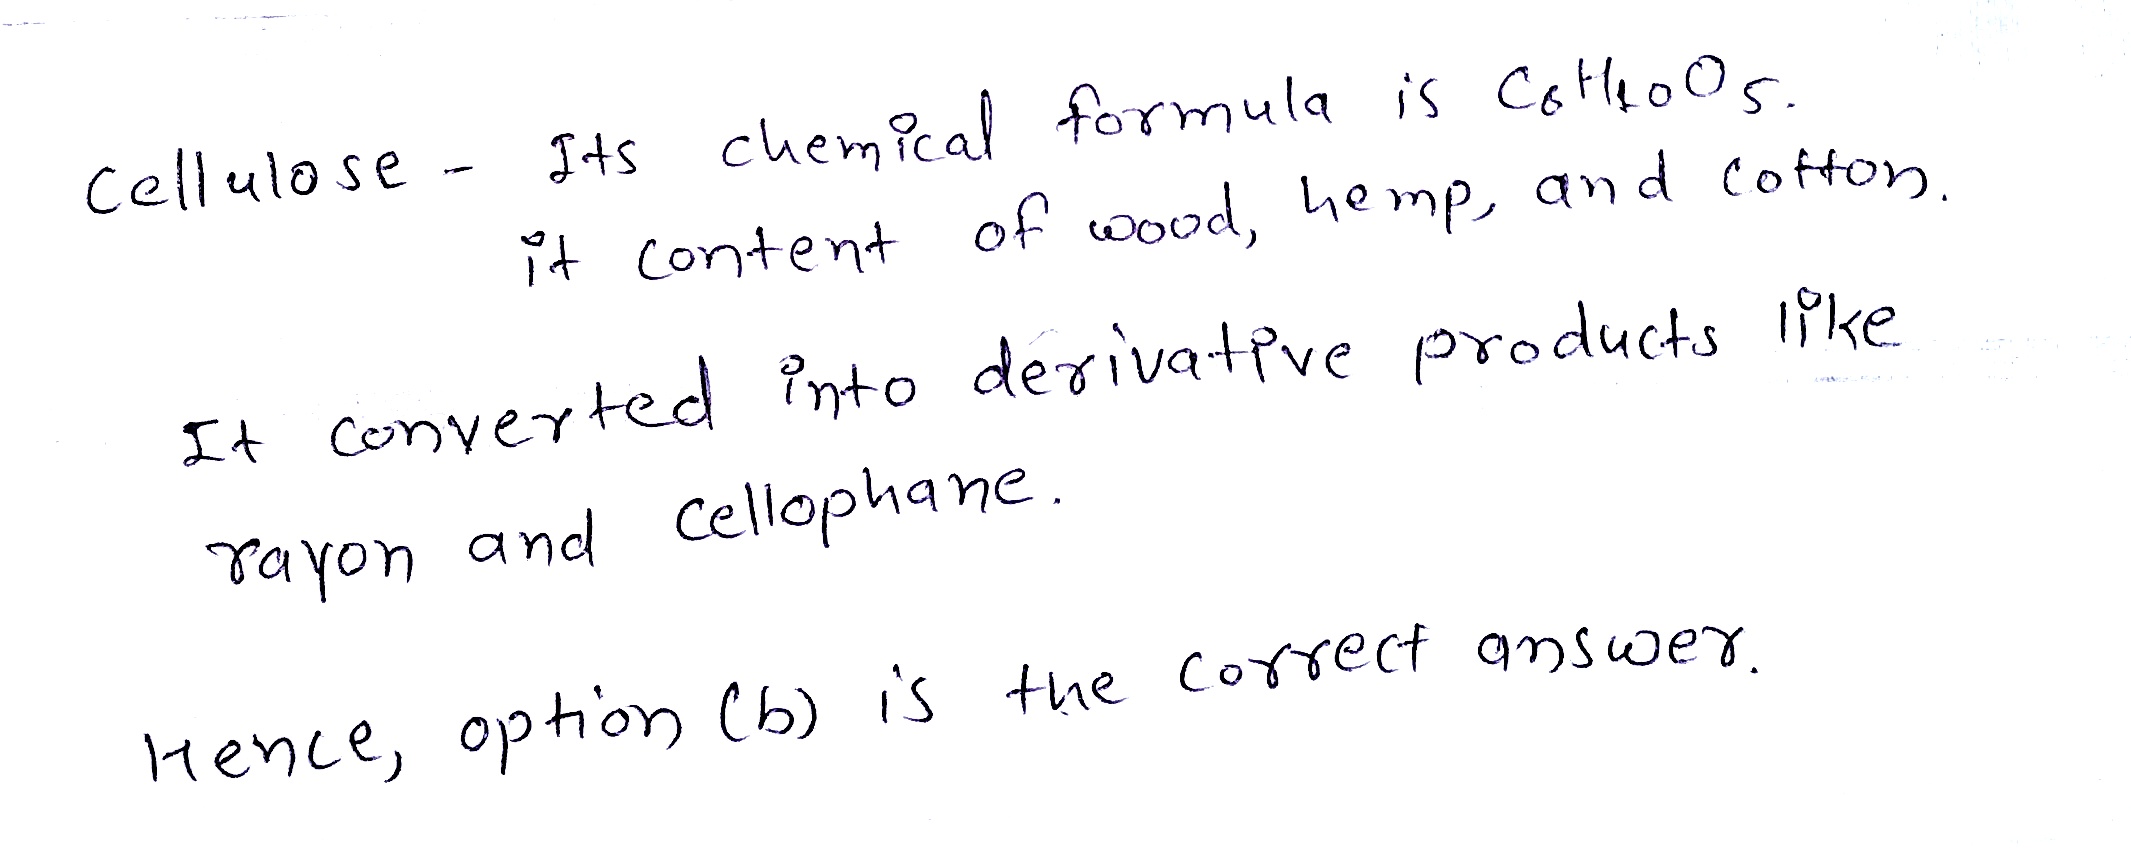 Cellulose - Its chemical formula is C6H10O5.
it content of wood, hemp, and cotton.
It converted into derivative products like
rayon and cellophane.
Hence, option (b) is the correct answer.